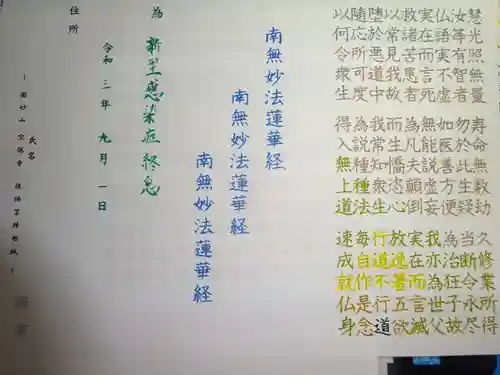 慧光照無量 寿命無数劫 久修業所得
汝等有智者 勿於此生疑 当断令永尽
仏語実不虚 如医善方便 為治狂子故
実在而言死 無能説虚妄 我亦為世父
救諸苦患者 為凡夫顛倒 実在而言滅
以常見我故 而生憍恣心 放逸著五欲
堕於悪道中 我常知衆生 行道不行道
随応所可度 為説種種法 毎自作是念
以何令衆生 得入無上道 速成就仏身
南無妙法蓮華経
南無妙法蓮華経
南無妙法蓮華経
為 新型感染症終息
令和三年九月一日
住所
氏名